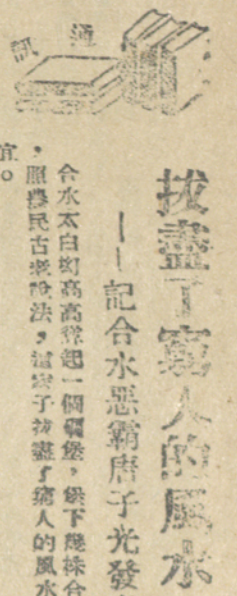 通訊
拔盡了窮人的風水
——記合水惡霸唐子光發
合水太白町高高聳起一個碉堡，堡下幾株合
，照農民古老說法，這寨子拔盡了窮人的風水
宜。